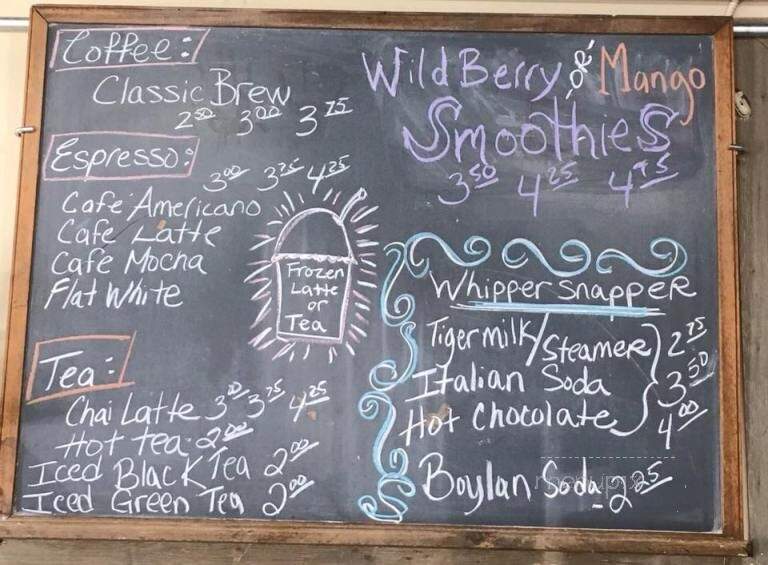 Coffee:
Classic Brew
2.50 3.00 3.75
Espresso:
3.00 3.75 4.25
Café Americano
Cafe Latte
Cafe Mocha
Flat White
Frozen
Latte
or
Tea
Tea:
Chai Latte 3.00 3.75 4.25
Hot tea 2.00
Iced Black Tea 2.00
Iced Green Tea 2.00
Wild Berry & Mango
Smoothies
3.50 4.25 4.75
Whipper Snapper
Tiger milk/Steamer 2.75
Italian Soda 3.50
Hot Chocolate 4.00
Boylan Soda - 2.25